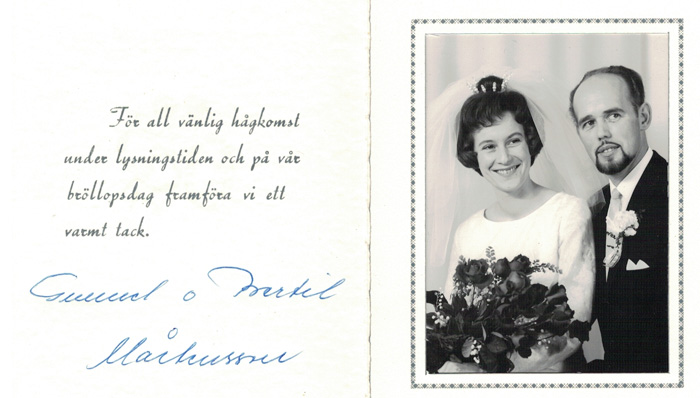 För all vänlig hågkomst
under lysningstiden och på vår
bröllopsdag framföra vi ett
varmt tack.
Gunnel o Bertil